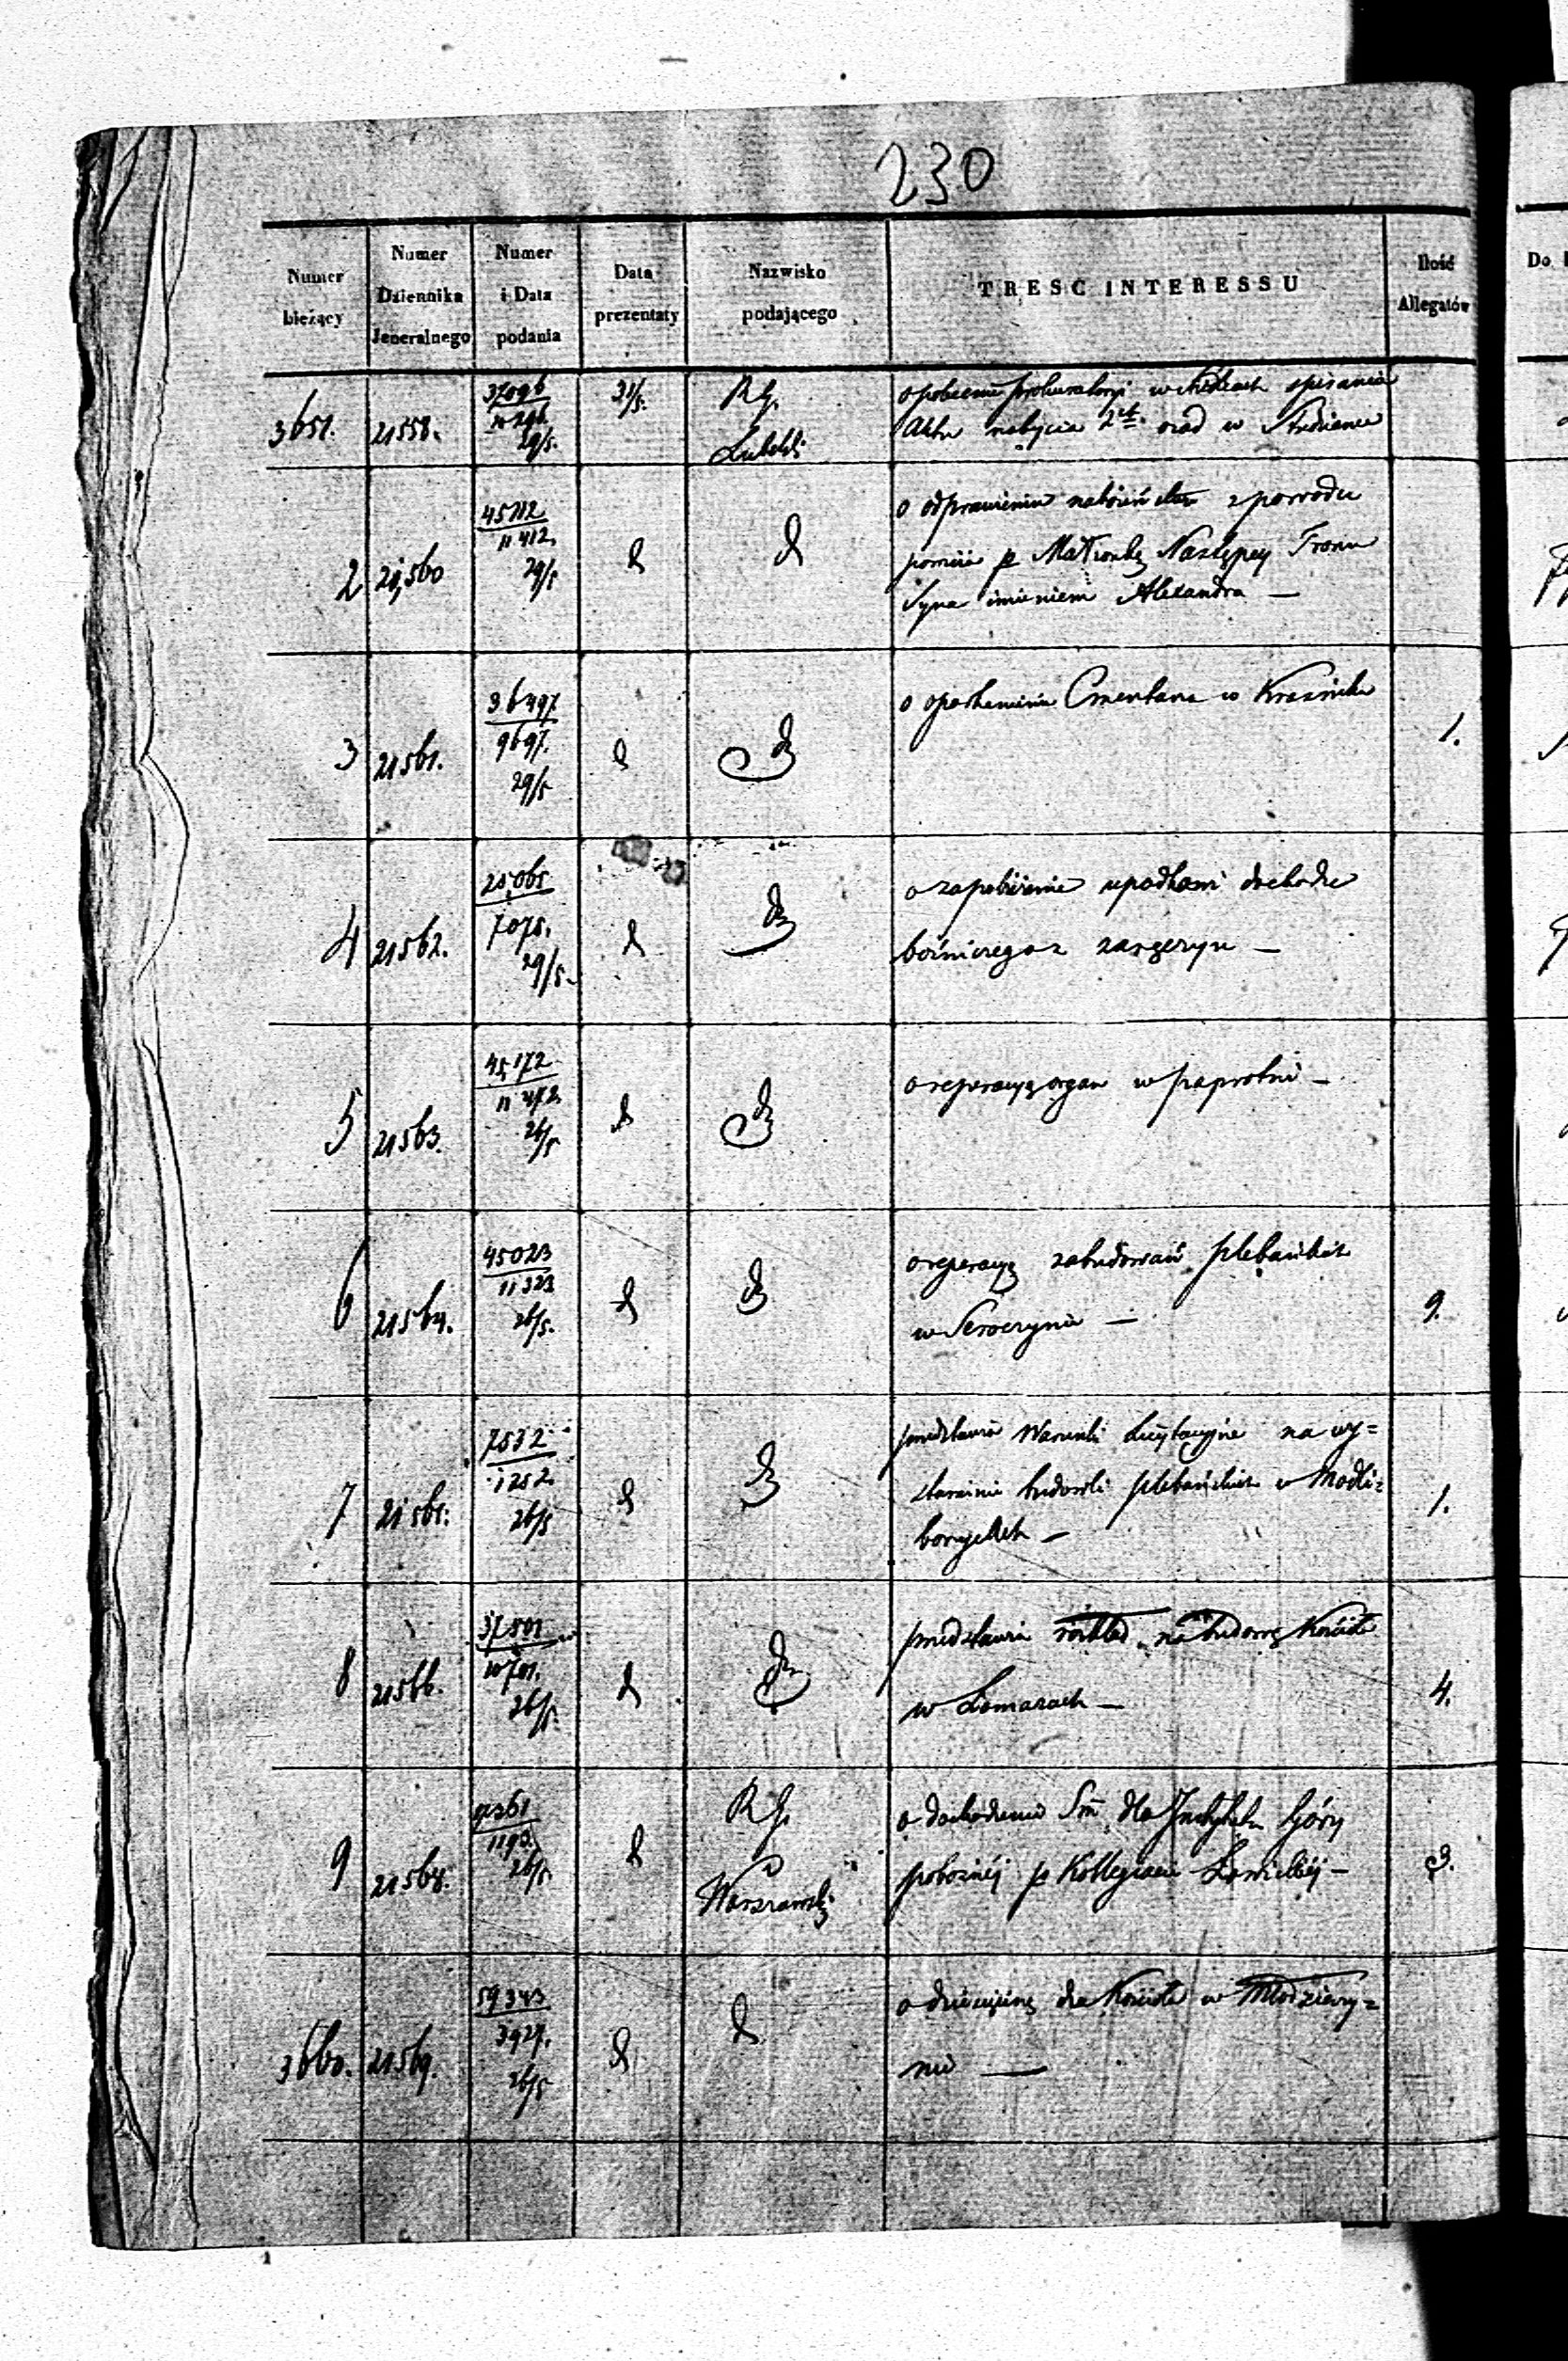 230
Numer bieżący
Numer Dziennika Jeneralnego
Numer i Data podania
Data prezentaty
Nazwisko podającego
TRESC INTERESSU
Ilość Allegatów
Do
3651. 21558. 37096 10296 29/5. 31/5. R. G. Lubelski
Aktu nabycia 2ch osad w Studziance
2 21,560 45112 11412. 29/5 d d
o odprawieniu nabożeństwa z powodu
powicia pr Małżonkę Następcy Tronu
Syna imieniem Alexandra —
3 21561. 36497 9697. 29/5 d d o oparkanieniu Cmentarza w Kraśniku 1.
4 21562. 25065 7075. 29/5. d d
o zapobieżenie upadkowi dochodu
bożniczego z
5 21563. 45172 11472. 26/5 d d o reperacyę organ w Paprotni —
6 21564. 45023 11323 26/5. d d o reperacyę zabudowań plebańskich
w Seroczynie — 9.
7 21565. 7532 1252. 26/5 d d
przedstawia Warunki Licytacyjne na wy=
stawienie budowli plebańskich w Modli=
borzycach — 1.
8 21566. 37501 10701. 26/5. d d
przedstawia rozkład na budowę Kościoła
w Łomazach — 4.
9 21568. 1193. 26/5. d R. G. Warszawski
o dochodzeniu Sm dla Instytutu Góry
pobożnéj pr Kollegiacie Łowickiéj — 3.
3660. 21569. 59343 3927. 26/5 d d
o dziesięcinę dla Kościoła w Młodzieszy=
nie —